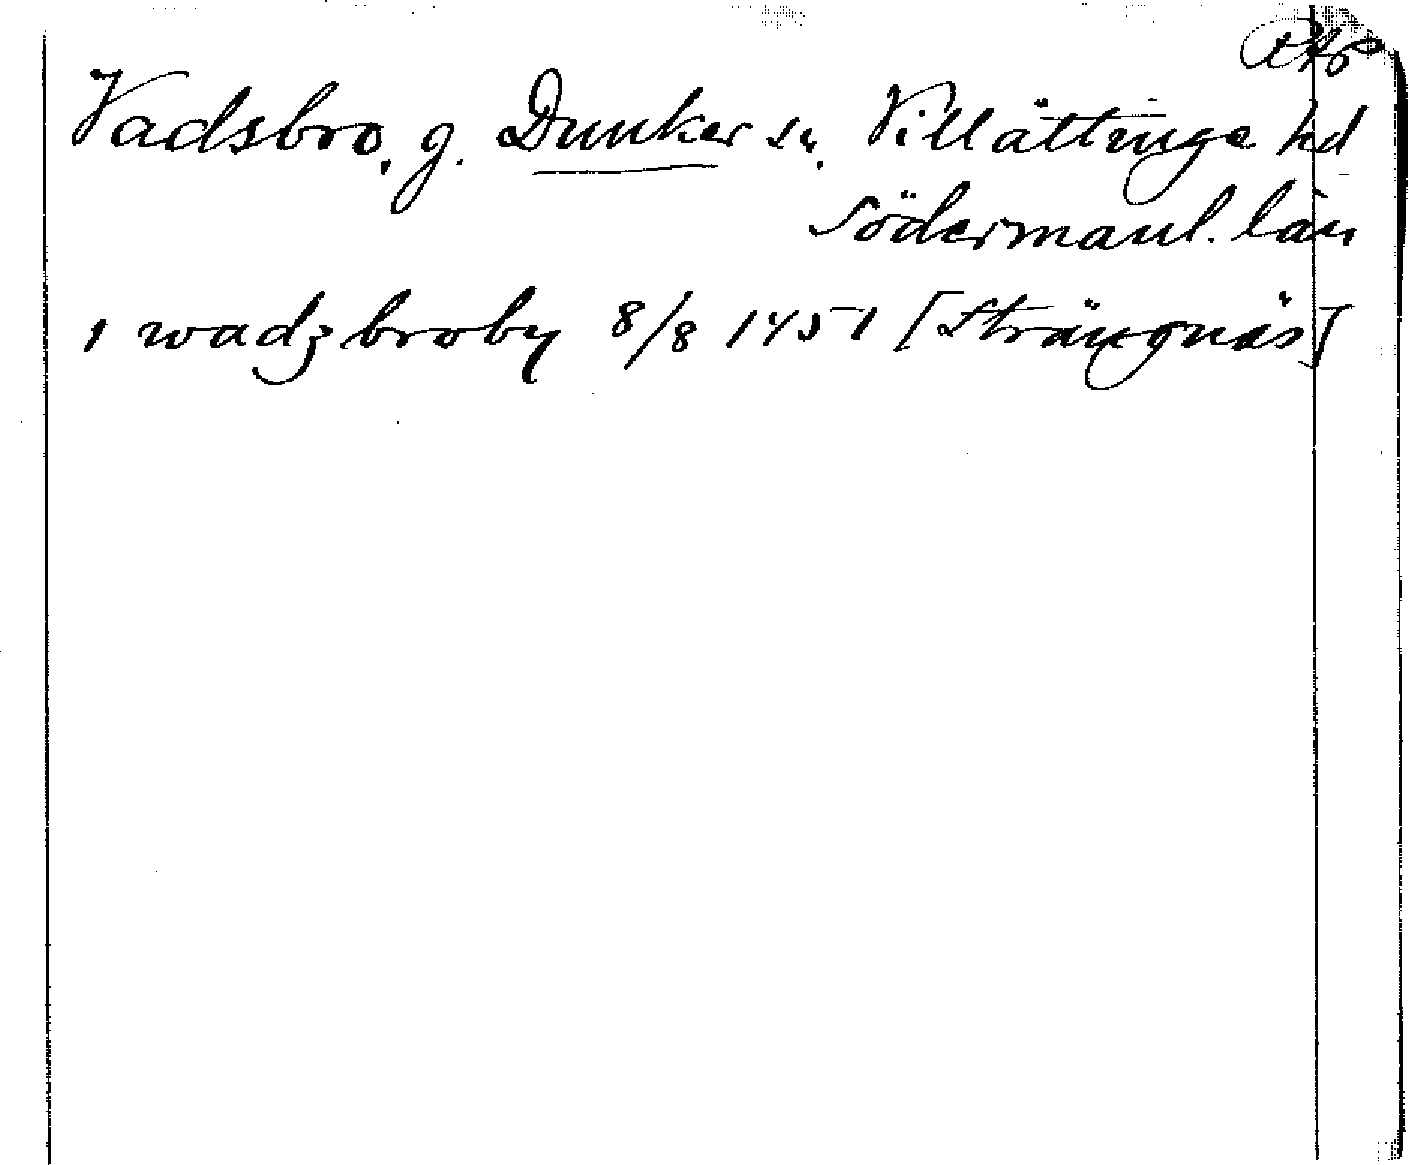 RAP
Vadsbro, g. Dunker sn, Villåttinge hd
Södermanl. län
i wadzbroby 8/8 1451 [Strängnäs]